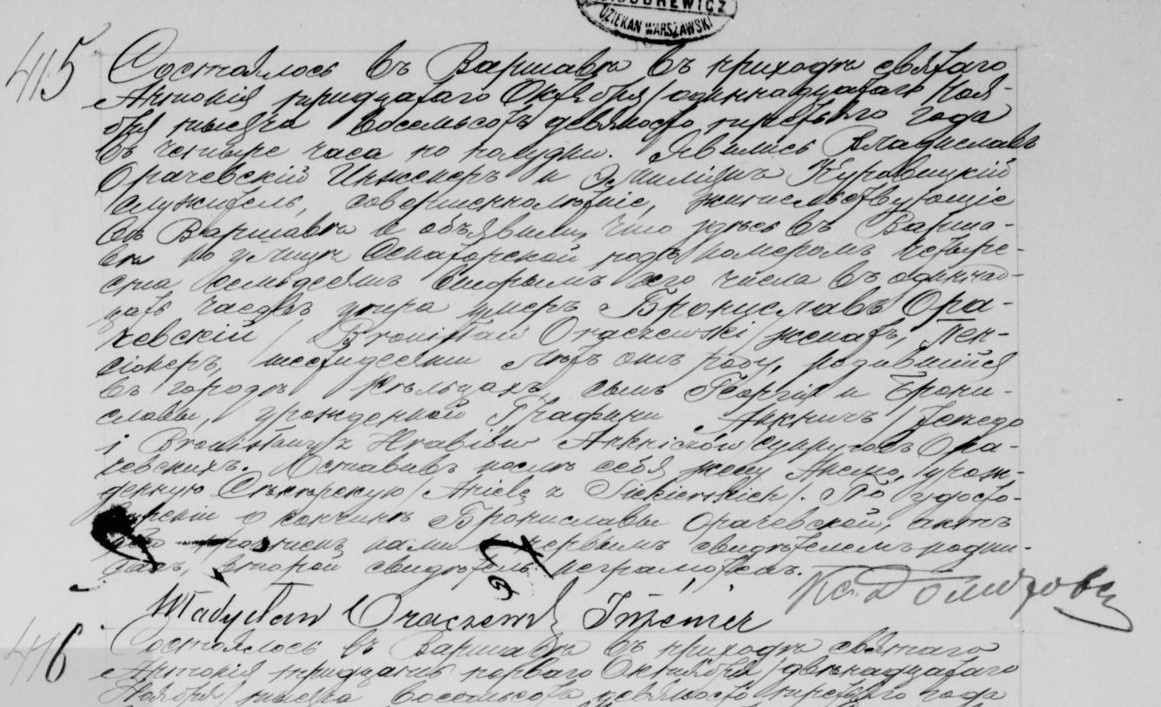 DZIEKAN WARSZAWSKI
415
Состоялось въ Варшавѣ въ приходѣ святаго
Антонія тридцатаго Октября / одиннадцатаго Ноя-
бря тысяча восемьсотъ девяносто третьяго года
въ четыре часа по полудни. Явились Владиславъ
Орачевскій Инженеръ и Куровицкій
служитель, совершеннолѣтніе, жительствующіе
въ Варшавѣ и объявили, что здѣсь въ Варша-
вѣ по улицѣ Сенаторской подъ номеромъ четыре-
ста семьдесятъ вторымъ сего числа въ одиннад-
цать часовъ утра умеръ Брониславъ Ора-
чевскій / Bronisław Oraczewski / женатъ, пен-
сіонеръ, шестидесяти лѣтъ отъ роду, родившійся
въ городѣ Кѣльцахъ сынъ Георгія и Брони-
славы, урожденной Графини Анквичъ /
i Bronisławy z Hrabiów Ankwiczów / супруговъ Ора-
чевскихъ. Оставивъ послѣ себя жену Анелю, урож-
денную Сѣкерскую / Anielę z Siekierskich /. По удосто-
вѣреніи о кончинѣ Бронислава Орачевскаго, актъ
нами и первымъ свидѣтелемъ подпи-
санъ, второй свидѣтель неграмотенъ.
Władysław Oraczewski Inżenier
416
Состоялось въ Варшавѣ въ приходѣ святаго
Антонія тридцать перваго Октября / двѣнадцатаго
Ноября / тысяча восемьсотъ девяносто третьяго года